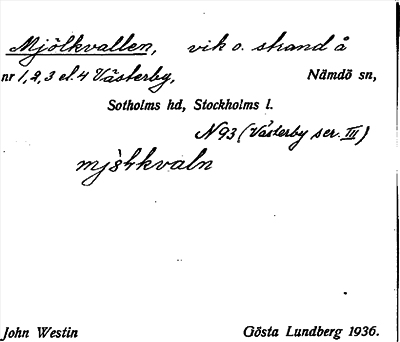 Mjölkvallen, vik o. strand å
nr 1, 2, 3 el. 4 Västerby, Nämdö sn,
Sotholms hd, Stockholms l.
N93 (Västerby ser. III)
John Westin Gösta Lundberg 1936.